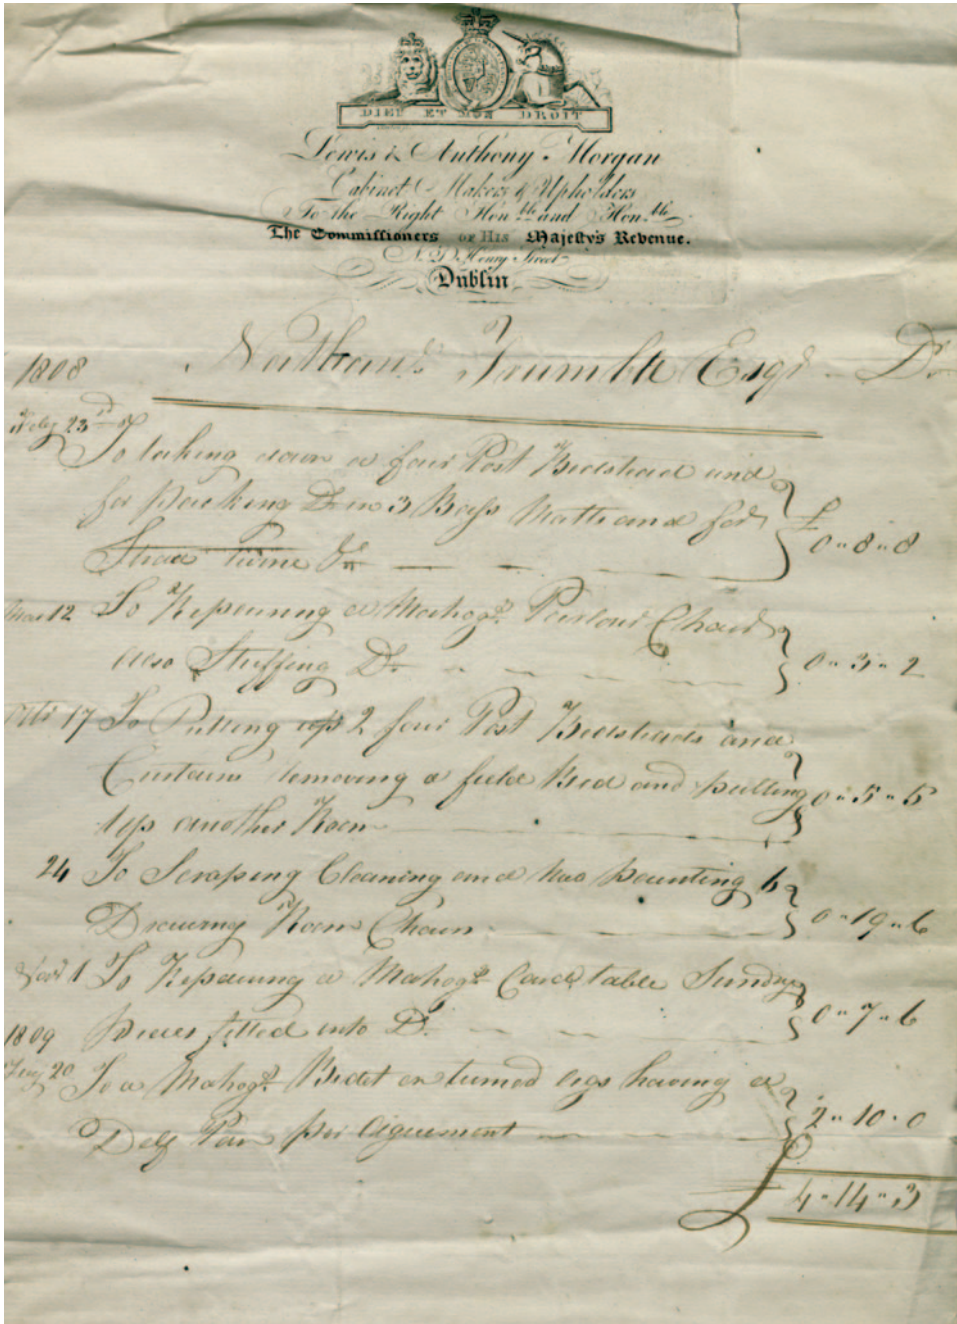 DIEU ET MON DROIT
Lewis & Anthony Morgan
Cabinet Makers & Upholders
To the Right Hon.ble and Hon.ble
The Commissioners of His Majesty's Revenue.
Henry Street
Dublin
1808 Nathanl. Trumble Esqr. Dr.
Feby 23rd To taking down a four Post Bedstead and
for packing Do. in 3 Bass Matts and for
Thread Twine &c £ 0 " 8 " 8
Mar 12 To Repairing a Mahogy. Parlour Chair
also Stuffing Do. 0 " 3 " 2
Octr 17 To Putting up 2 four Post Bedsteads and
Curtains removing a field Bed and putting 0 " 5 " 5
up another Room
24 To Scraping Cleaning and painting 6
Drawing Room Chairs 0 " 19 " 6
Novr 1 To Repairing a Mahogy. Card table Sundry
pieces fitted into Do. 0 " 7 " 6
1809
20 To a Mahogy. Bidet on turned legs having a
Delf Pan per Agreement 2 " 10 " 0
£ 4 " 14 " 3